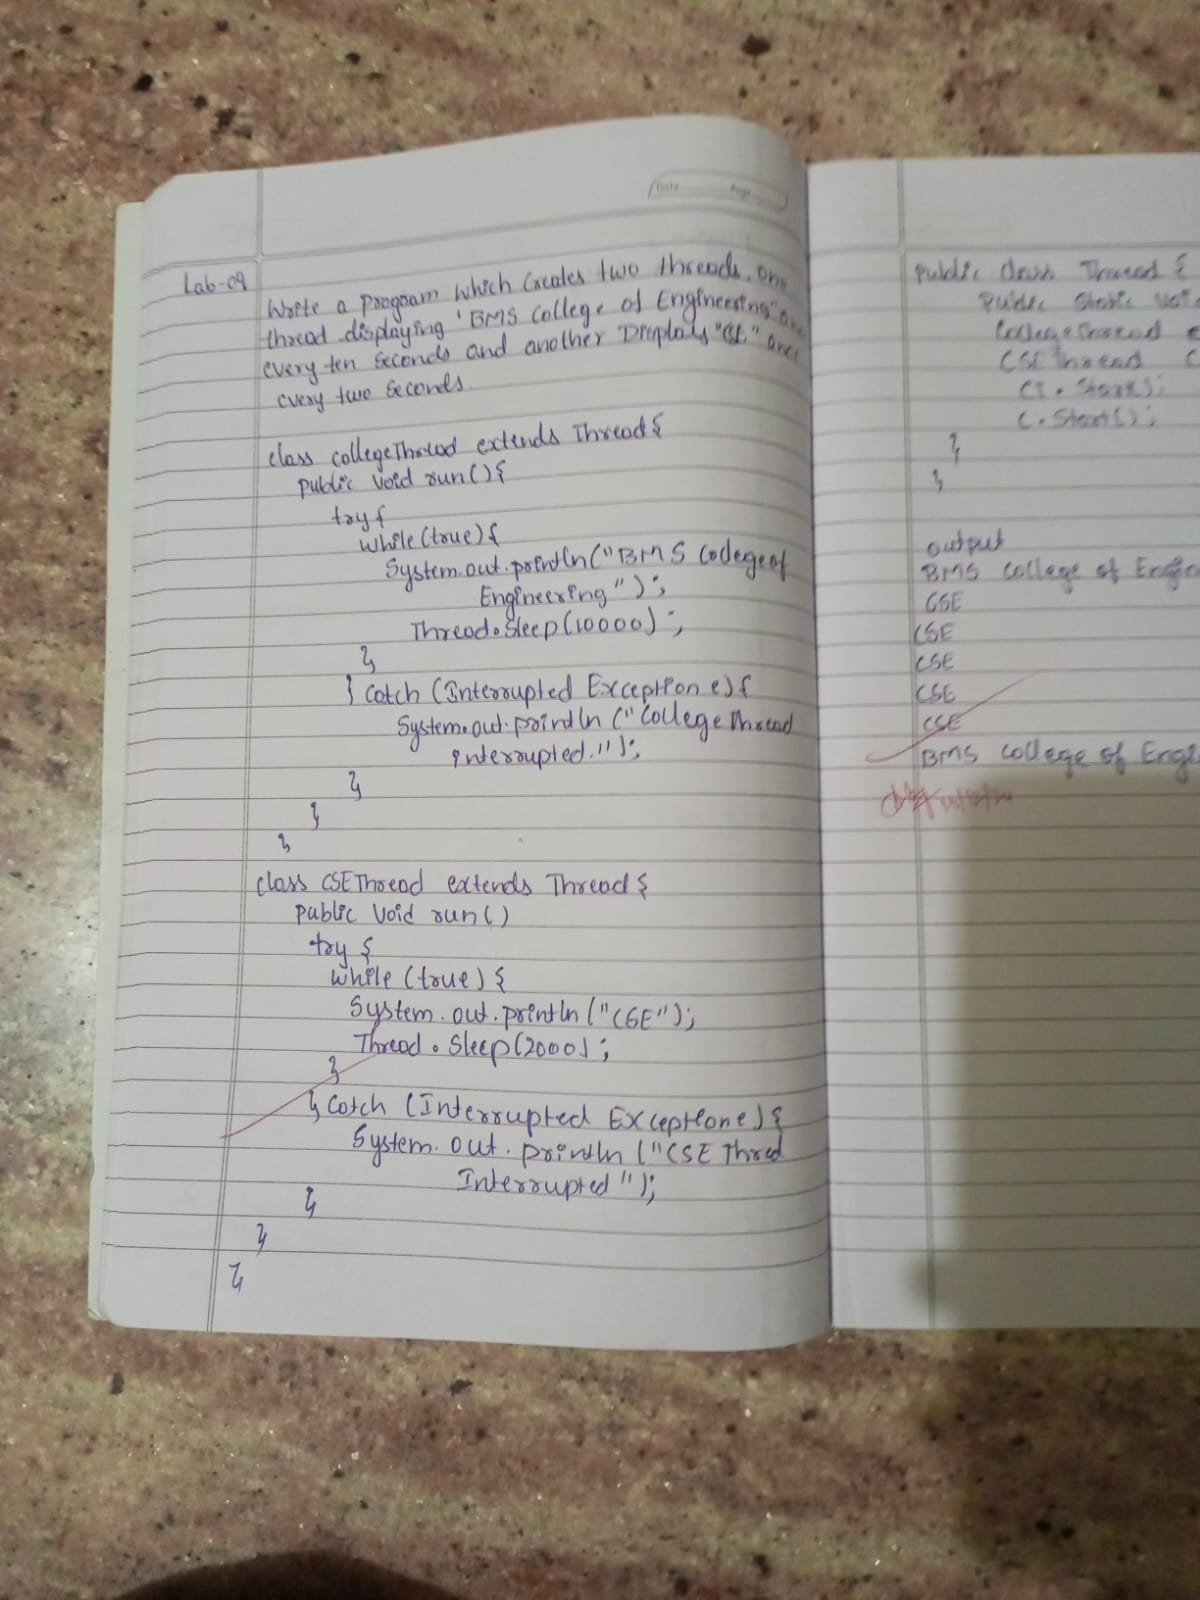 Date Page
Lab-09
Write a program which Creates two threads, one
thread displaying 'BMS College of Engineering"
every ten Seconds and another Displays "CSE" once
every two Seconds.
class collegeThread extends Thread{
public void run(){
try{
while(true){
System.out.println("BMS College of
Engineering");
Thread.Sleep(10000);
}
} catch (Interrupted Exception e){
System.out.println("College Thread
interrupted.");
}
}
}
class CSEThread extends Thread{
public void run()
try {
while (true) {
System.out.println("CSE");
Thread.Sleep(2000);
}
} catch (Interrupted Exception e){
System.out.println("CSE Thred
Interrupted");
}
}
}
Public Class Thread {
Public Static Void
CollegeThread
CSE Thread
CT.Start();
C.Start();
}
}
output
BMS College of Engin
CSE
CSE
CSE
CSE
CSE
BMS College of Engi